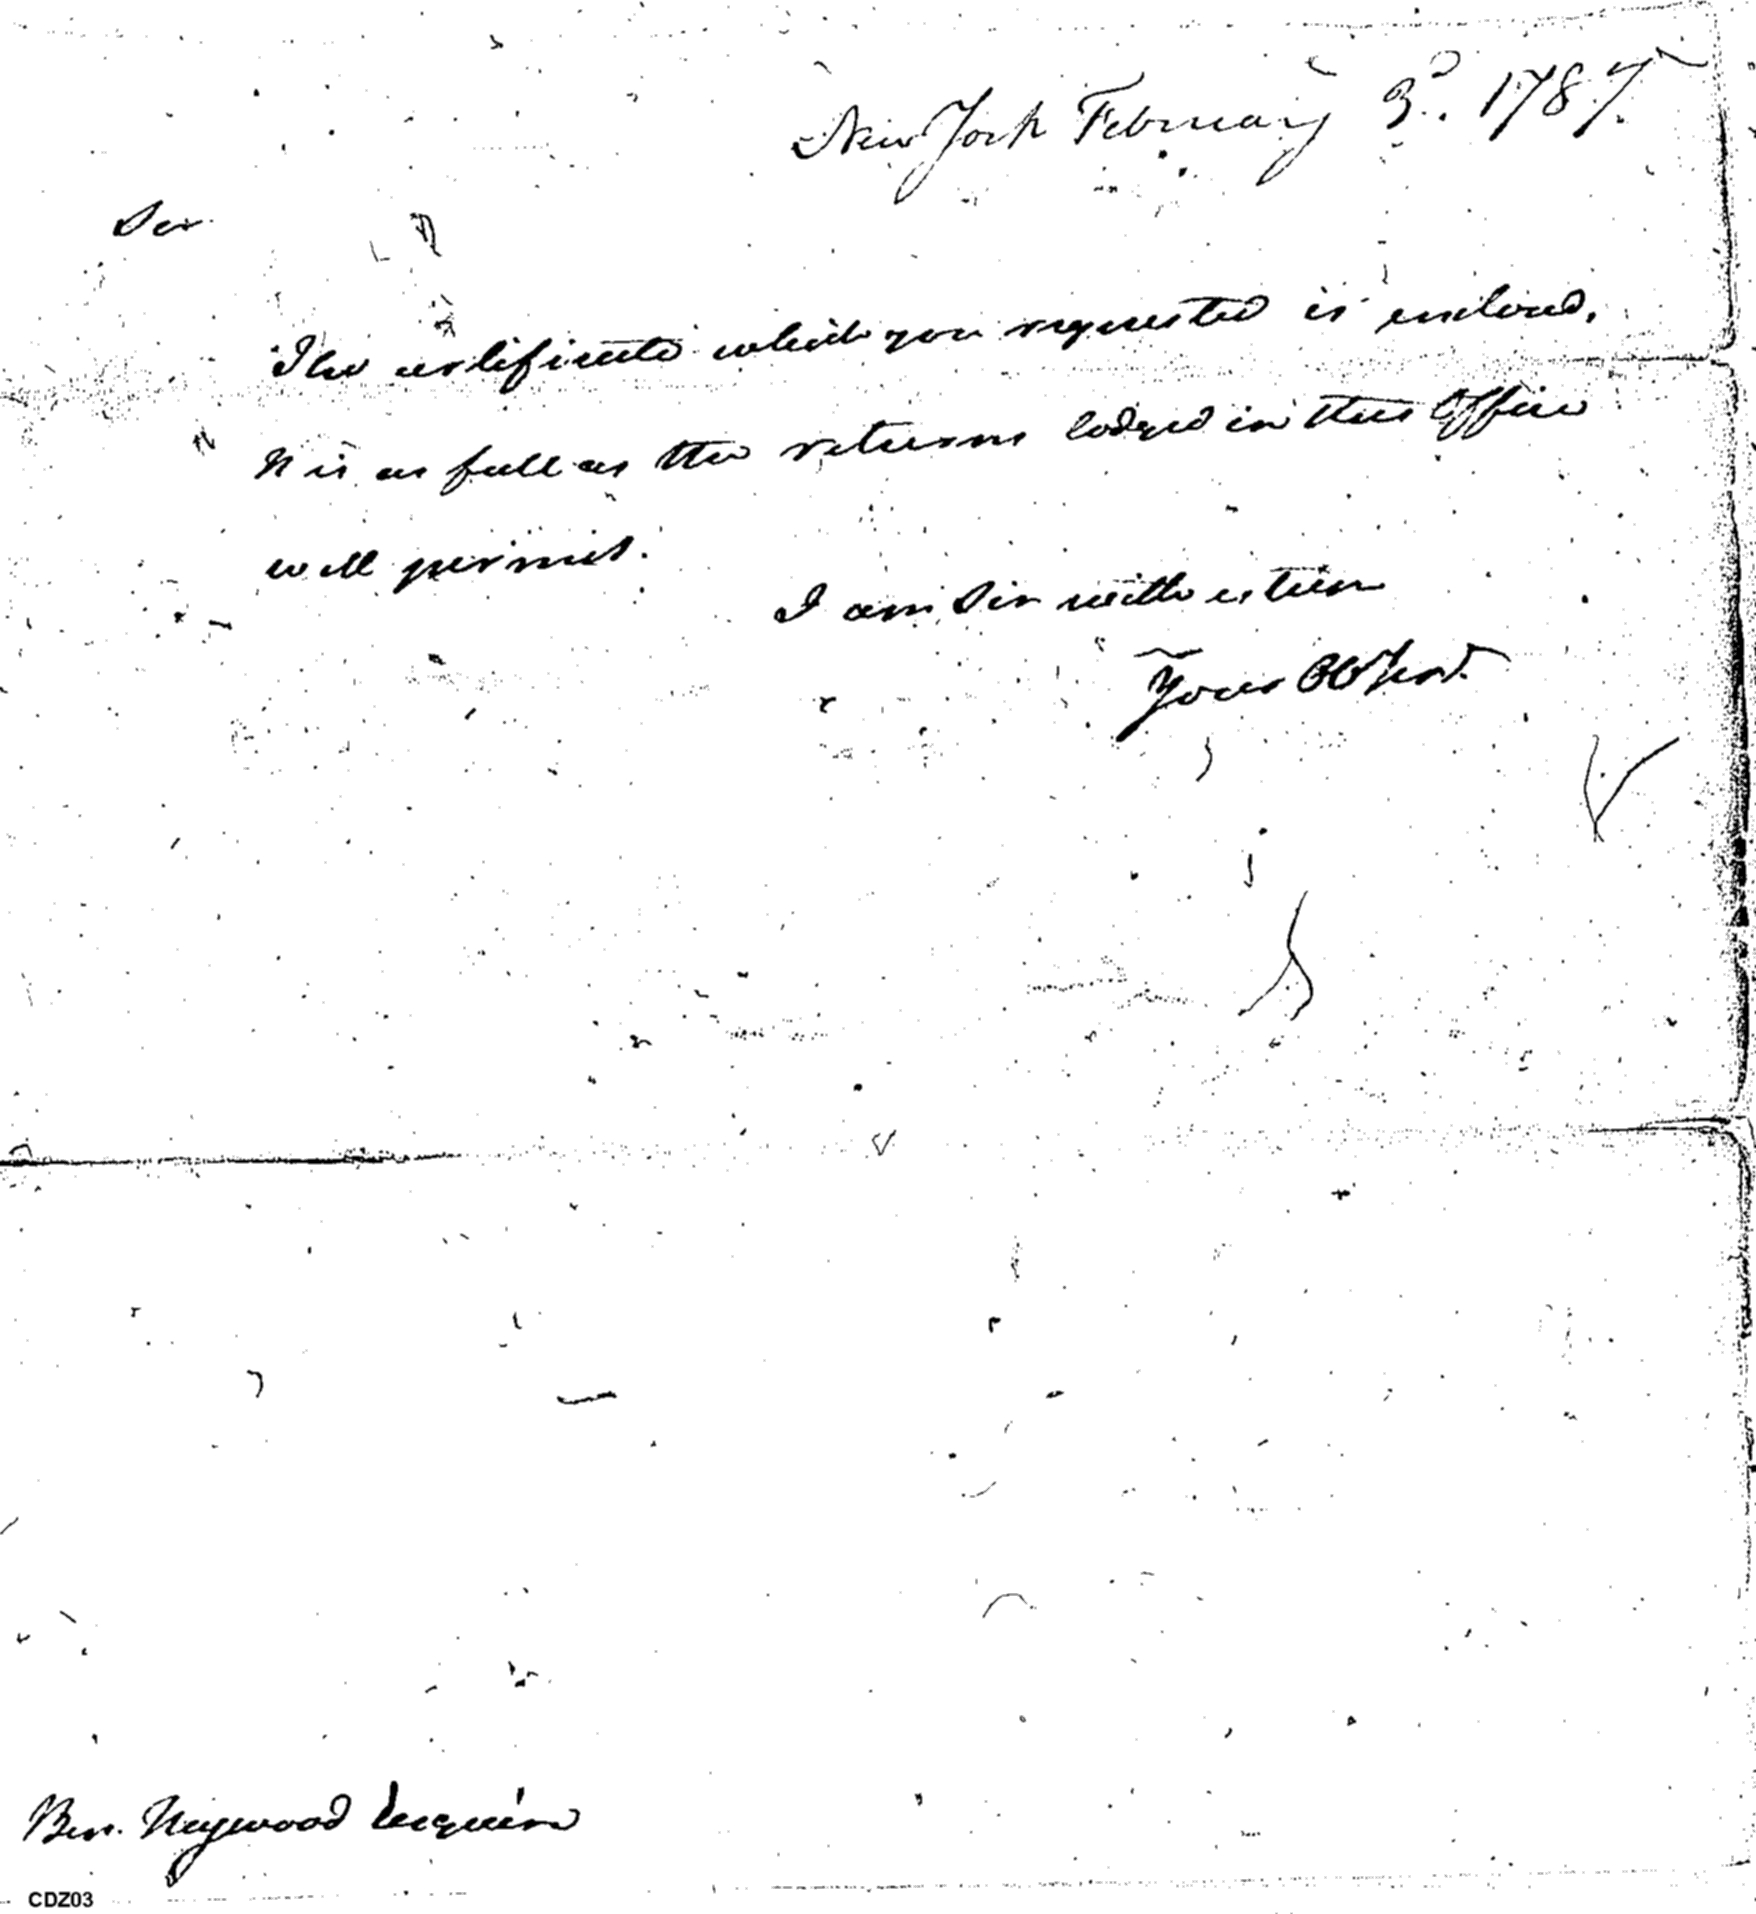 New York February 3d. 1787.
Sir
The certificate which you requested is enclosed.
It is as full as the returns lodged in this Office
will permit.
I am Sir with esteem
Your Obt Servt.
Ben. Heywood Esquire
CDZ03